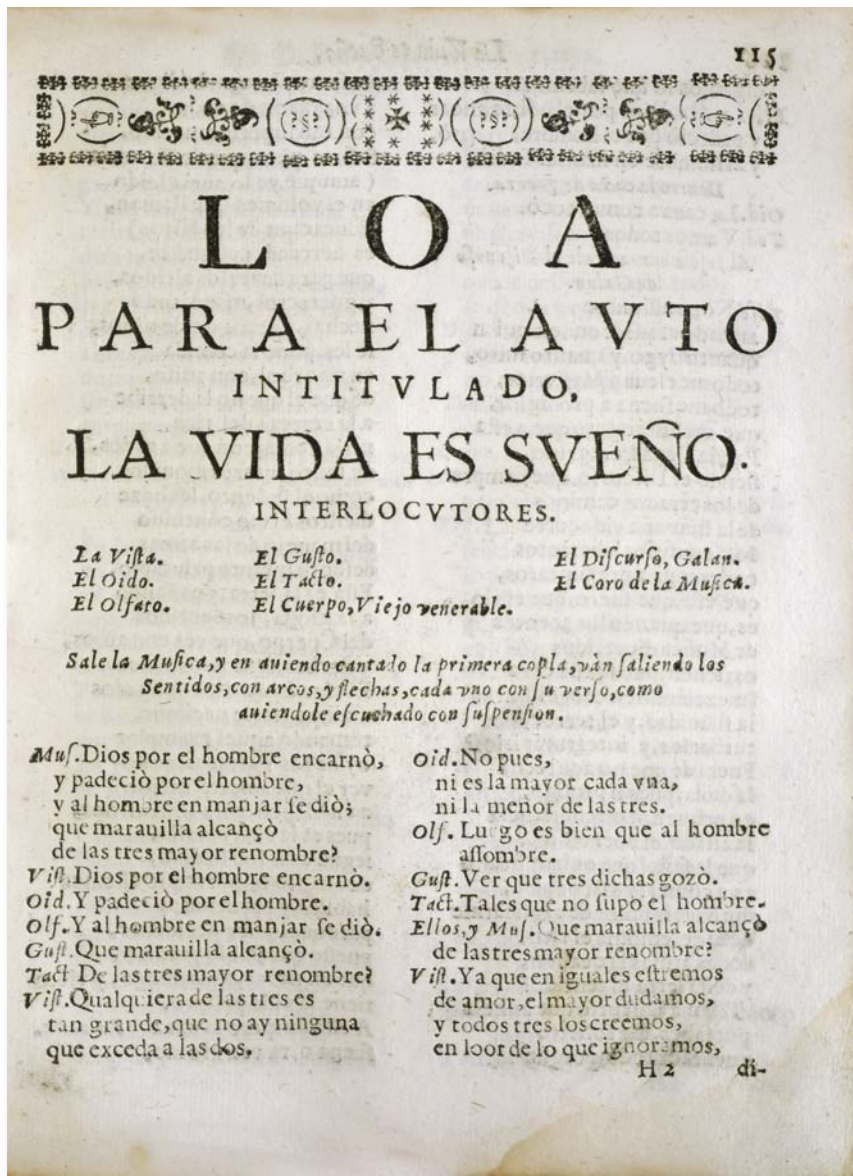 115
LOA
PARA EL AVTO
INTITVLADO,
LA VIDA ES SVEÑO.
INTERLOCVTORES.
La Viſta. El Guſto. El Diſcurſo, Galan.
El Oido. El Tacto. El Coro de la Muſica.
El Olfato. El Cuerpo, Viejo venerable.
Sale la Muſica, y en auiendo cantado la primera copla, vàn ſaliendo los
Sentidos, con arcos, y flechas, cada vno con ſu verſo, como
auiendole eſcuchado con ſuſpenſion.
Muſ. Dios por el hombre encarnò,
y padeciò por el hombre,
y al hombre en manjar ſe diò;
que marauilla alcançò
de las tres mayor renombre?
Viſt. Dios por el hombre encarnò.
Oid. Y padeciò por el hombre.
Olf. Y al hombre en manjar ſe diò.
Guſt. Que marauilla alcançò.
Tact De las tres mayor renombre?
Viſt. Qualquiera de las tres es
tan grande, que no ay ninguna
que exceda a las dos.
Oid. No pues,
ni es la mayor cada vna,
ni la menor de las tres.
Olf. Luego es bien que al hombre
aſſombre.
Guſt. Ver que tres dichas gozò.
Tact. Tales que no ſupo el hombre.
Ellos, y Muſ. Que marauilla alcançò
de las tres mayor renombre?
Viſt. Ya que en iguales eſtremos
de amor, el mayor dudamos,
y todos tres los creemos,
en loor de lo que ignoramos,
H 2 di-